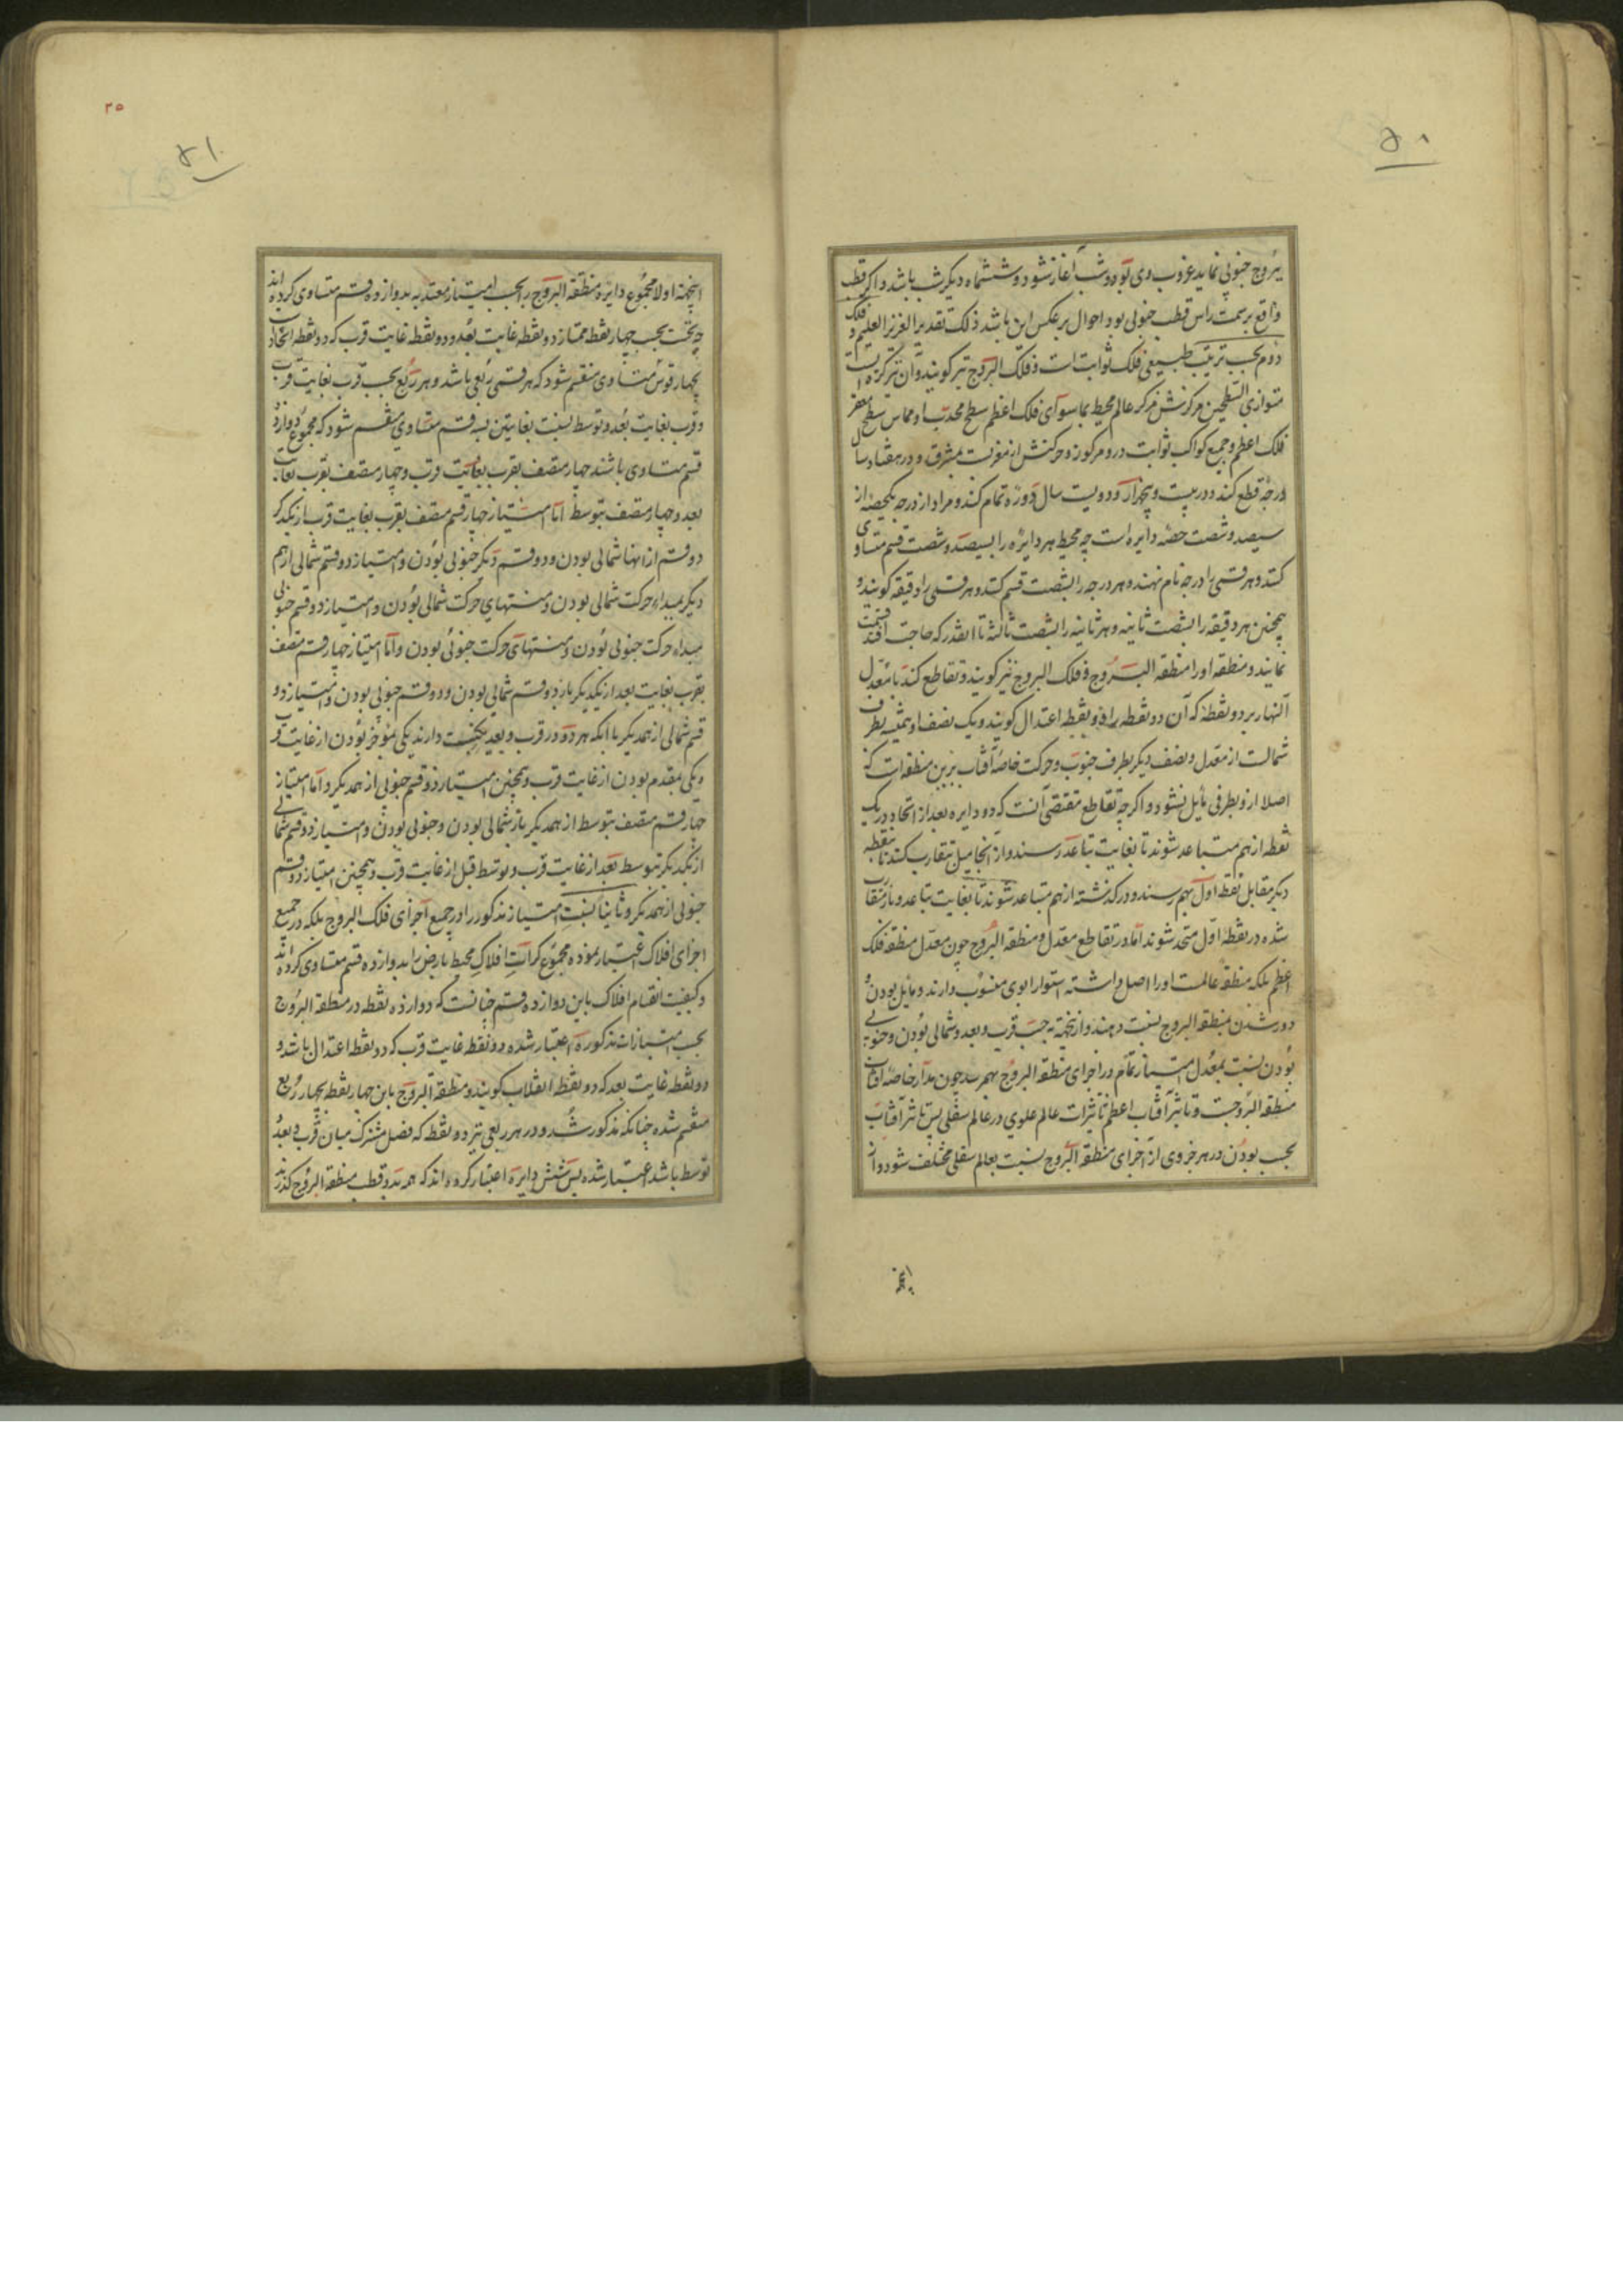 ۵۰
بروج جنوبی نماید غروب وی بوده شب آغاز شود و ششماه دیگر شب باشد و اگر قطب
واقع بر سمت راس قطب جنوبی بود احوال بر عکس این باشد ذلک تقدیر العزیز العلیم و فلک
دوم بحسب ترتیب طبیعی فلک ثوابت است و فلک البروج نیز کویند و آن نیز کره ایست
متوازی السطحین مرکزش مرکز عالم محیط بما سوای فلک اعظم سطح محدب او مماس سطح مقعر
فلک اعظم و جمیع کواکب ثوابت درو مرکوز و حرکتش از مغرب بمشرق و در هفتاد سال
درجهٔ قطع کند و در بیست و پنجهزار و دویست سال دوره تمام کند و مراد از درجه یکحصه از
سیصد و شصت حصهٔ دایره است چه محیط هر دایره را بسیصد و شصت قسم متساوی
کنند و هر قسمی را درجه نام نهند و هر درجه را بشصت قسم کنند و هر قسمی را دقیقه کویند و
همچنین هر دقیقه را بشصت ثانیه و هر ثانیه را بشصت ثالثه تا آنقدر که حاجت افتد قسمت
نمایند و منطقه او را منطقه البروج و فلک البروج نیز کویند و تقاطع کند با معدل
النهار بر دو نقطه که آن دو نقطه را دو نقطه اعتدال کویند و یک نصف او همیشه بطرف
شمالست از معدل و نصف دیگر بطرف جنوب و حرکت خاصه آفتاب برین منطقه است که
اصلا ازو بطرفی مایل نشود و اگرچه تقاطع مقتضی آنست که دو دایره بعد از اتحاد در یک
نقطه از هم متباعد شوند تا بغایت تباعد رسند و از آنجا میل بتقارب کنند تا بنقطه
دیگر مقابل نقطه اول بهم رسند و درگذشته از هم متباعد شوند تا بغایت تباعد و باز متقارب
شده در نقطهٔ اول متحد شوند اما در تقاطع معدل و منطقه البروج چون معدل منطقه فلک
اعظم بلکه منطقه عالمست او را اصل داشته استوا را بوی منسوب دارند و مایل بودن و
دور شدن بمنطقه البروج نسبت دهند و ازینجهة بحسب قرب و بعد و شمالی بودن و جنوبی
بودن نسبت بمعدل امتیاز تمام در اجزای منطقه البروج بهم رسد چون مدار خاصه آفتاب
منطقه البروجست و تاثیر آفتاب اعظم تاثیرات عالم علوی در عالم سفلی پس تاثیر آفتاب
بحسب بودن در هر جزوی از اجزای منطقه البروج نسبت بعالم سفلی مختلف شود و از
اینجهة
۲۵
۵۱
اینجهة اولا مجموع دایره منطقه البروج را بحسب امتیاز معتد به بدوازده قسم متساوی کرده اند
چه نخست بحسب چهار نقطه ممتاز دو نقطه غایت بعد و دو نقطه غایت قرب که دو نقطه اتحاد است
بچهار قوس متساوی منقسم شود که هر قسمی ربعی باشد و هر ربع بحسب قرب بغایت قرب
و قرب بغایت بعد و توسط بنسبت بغایتین بسه قسم متساوی منقسم شود که مجموع دوازده
قسم متساوی باشند چهار متصف بقرب بغایت قرب و چهار متصف بقرب بغایت
بعد و چهار متصف بتوسط اما امتیاز چهار قسم متصف بقرب بغایت قرب از یکدیگر
دو قسم از انها شمالی بودن و دو قسم دیگر جنوبی بودن و امتیاز دو قسم شمالی از هم
دیگر بمبداء حرکت شمالی بودن و منتهای حرکت شمالی بودن و امتیاز دو قسم جنوبی
بمبداء حرکت جنوبی بودن و منتهای حرکت جنوبی بودن و اما امتیاز چهار قسم متصف
بقرب بغایت بعد از یکدیگر باز دو قسم شمالی بودن و دو قسم جنوبی بودن و امتیاز دو
قسم شمالی از همدیگر با آنکه هر دو در قرب و بعد یکنسبت دارند یکی مؤخر بودن از غایت قرب
و یکی بمقدم بودن از غایت قرب و همچنین امتیاز دو قسم جنوبی از همدیگر و اما امتیاز
چهار قسم متصف بتوسط از همدیگر باز شمالی بودن و جنوبی بودن و امتیاز دو قسم شمالی
از یکدیگر بتوسط بعد از غایت قرب و توسط قبل از غایت قرب و همچنین امتیاز دو قسم
جنوبی از همدیگر و ثانیا نسبت امتیاز مذکور را در جمیع اجزای فلک البروج بلکه در جمیع
اجزای افلاک اعتبار نموده مجموع کرات افلاک محیط بارض را بدوازده قسم متساوی کرده اند
و کیفیت انقسام افلاک باین دوازده قسم چنانست که دوازده نقطه در منطقه البروج
بحسب امتیازات مذکوره اعتبار شده دو نقطه غایت قرب که دو نقطه اعتدال باشد و
دو نقطه غایت بعد که دو نقطه انقلاب کویند و منطقه البروج باین چهار نقطه بچهار ربع
منقسم شده چنانکه مذکور شد و در هر ربعی نیز دو نقطه که فصل مشترک میان قرب و بعد و
توسط باشد اعتبار شده پس شش دایره اعتبار کرده اند که همه بدو قطب منطقه البروج گذرند